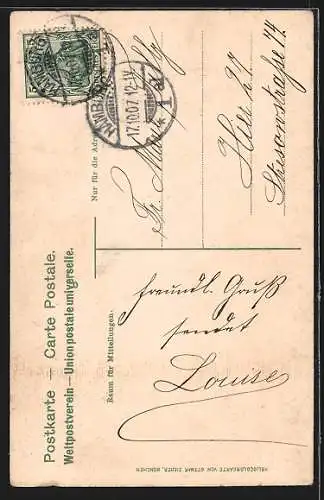 Postkarte — Carte Postale.
Weltpostverein — Union postale universelle.
Nur für die Adr
Raum für Mitteilungen:
HAMBURG
17.10.07. 12-1V.
* 1 d *
5
Hier 27
Stresowstraße 74.
freundl. Gruß
sendet
Louise
HELIOCOLORKARTE VON OTTMAR ZIEHER, MÜNCHEN